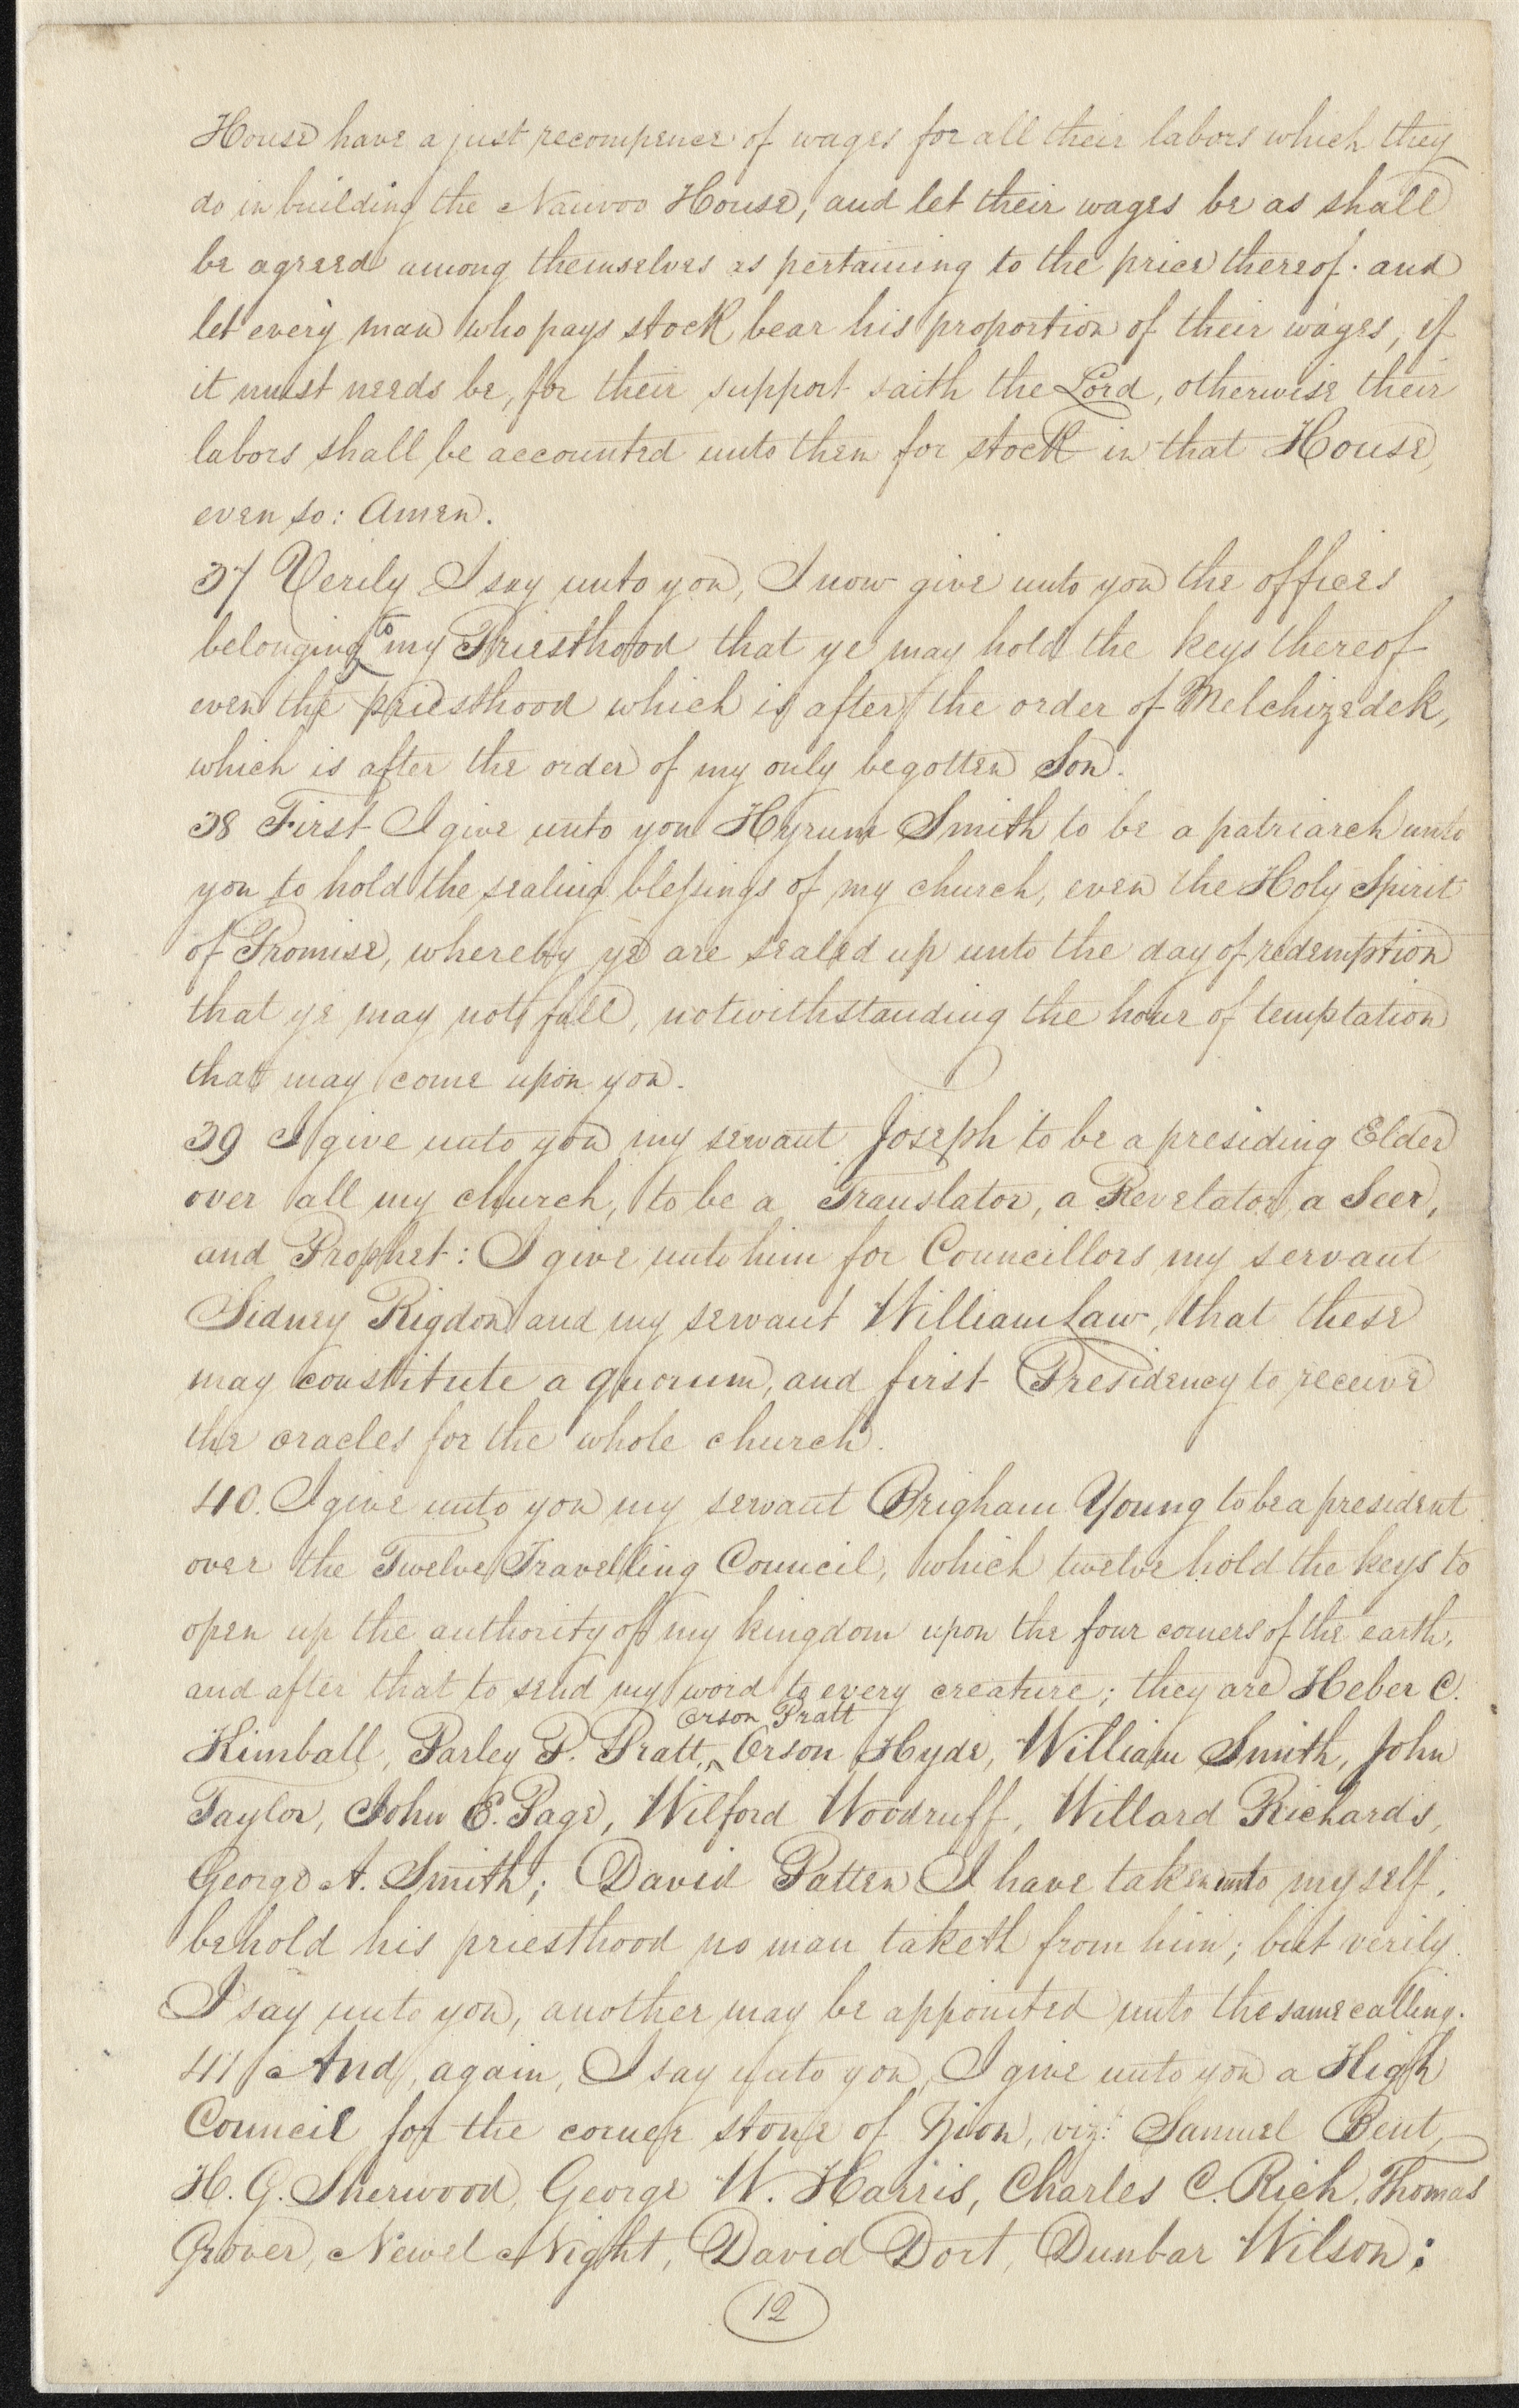 House have a just recompence of wages for all their labors which they
do in building the Nauvoo House, and let their wages be as shall
be agreed among themselves as pertaining to the price thereof. and
let every man who pays stock bear his proportion of their wages, if
it must needs be, for their support saith the Lord, otherwise their
labors shall be accounted unto them for stock in that House,
even so: Amen.
37 Verily I say unto you, I now give unto you the offices
belonging to my Priesthood that ye may hold the keys thereof
even the priesthood which is after the order of Melchizedek,
which is after the order of my only begotten Son.
38 First I give unto you Hyrum Smith to be a patriarch unto
you to hold the sealing blessings of my church, even the Holy Spirit
of Promise, whereby ye are sealed up unto the day of redemption
that ye may not fall, notwithstanding the hour of temptation
that may come upon you.
39 I give unto you my servant Joseph to be a presiding Elder
over all my church, to be a Translator, a Revelator, a Seer,
and Prophet: I give unto him for Councillors my servant
Sidney Rigdon and my servant William Law, that these
may constitute a quorum, and first Presidency to receive
the oracles for the whole church.
40. I give unto you my servant Brigham Young to be a president
over the Twelve Travelling Council, which twelve hold the keys to
open up the authority of my kingdom upon the four corners of the earth,
and after that to send my word to every creature; they are Heber C.
Orson Pratt
Kimball, Parley P. Pratt, Orson Hyde, William Smith, John
Taylor, John E. Page, Wilford Woodruff, Willard Richards,
George A. Smith; David Patten I have taken unto myself,
behold his priesthood no man taketh from him; but verily
I say unto you, another may be appointed unto the same calling.
41 And, again, I say unto you, I give unto you a High
Council for the corner stone of Zion, viz: Samuel Bent,
H. G. Sherwood, George W. Harris, Charles C. Rich, Thomas
Grover, Newel Night, David Dort, Dunbar Wilson:
12